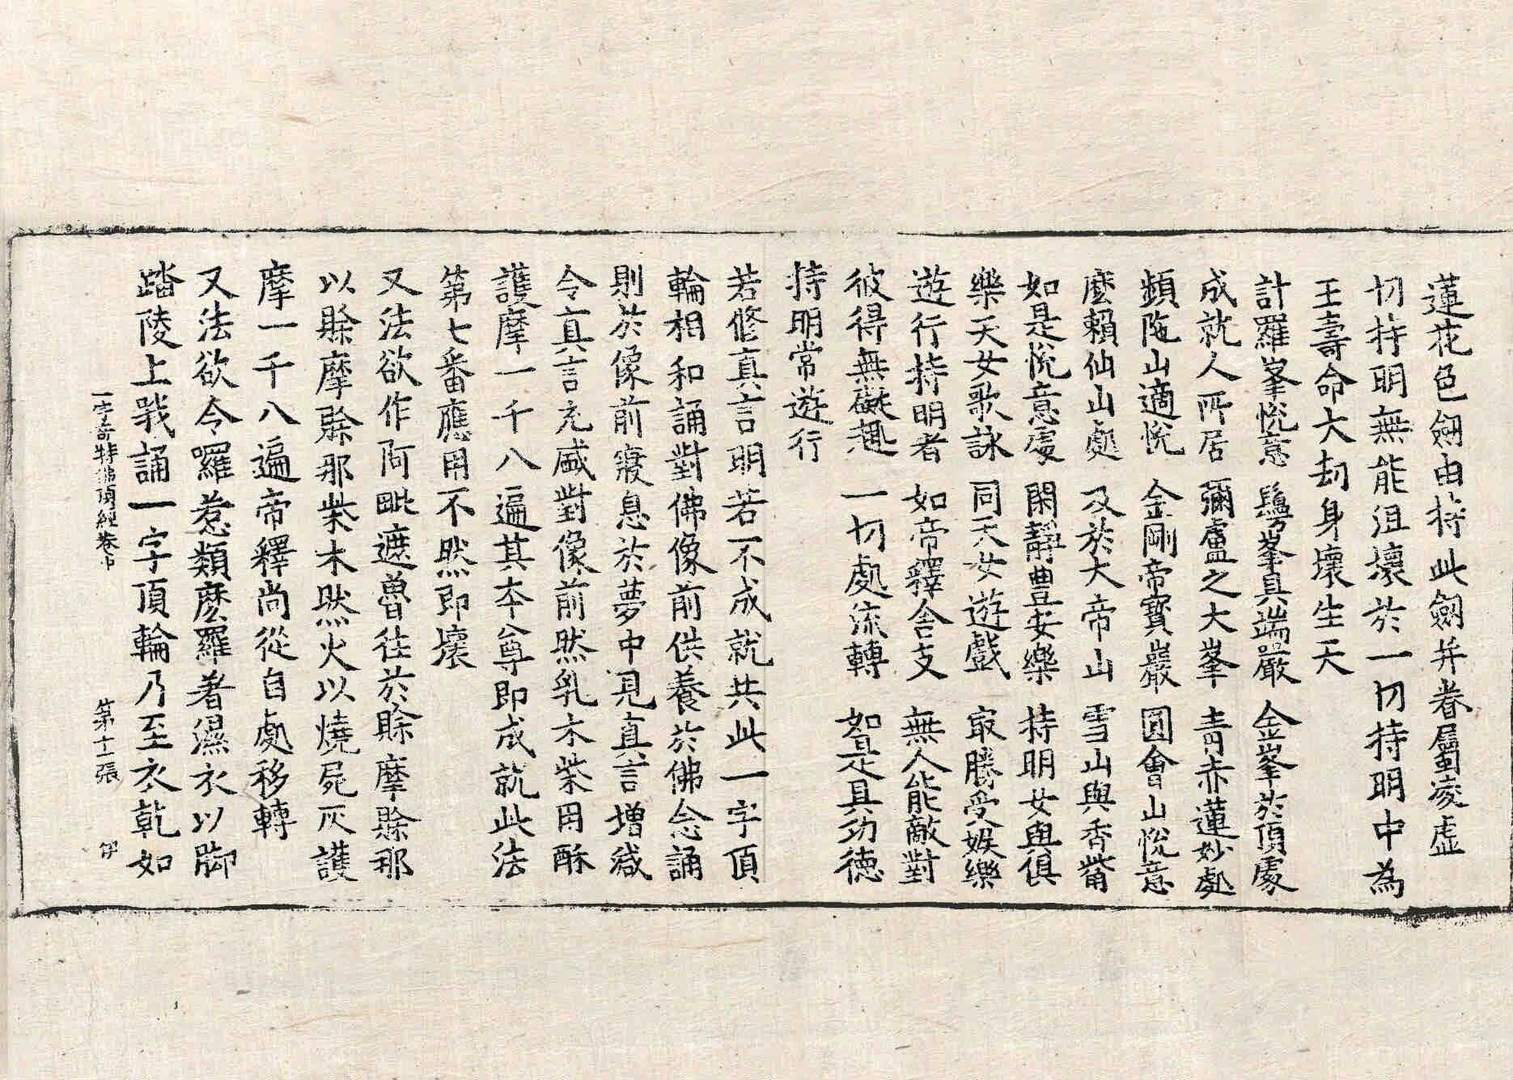 蓮花色劒由持此劒并眷屬凌虛
切持明無能沮壞於一切持明中為
王壽命大劫身壞生天
計羅峯悅意　鬘峯具端嚴　金峯於頂處
成就人所居　彌盧之大峯　青赤蓮妙處
頻陁山適悅　金剛帝寶巖　圓會山悅意
麼賴仙山處　及於大帝山　雪山與香觜
如是悅意處　閑靜豊安樂　持明女與俱
樂天女歌詠　同天女遊戲　冣勝受娛樂
遊行持明者　如帝釋舍支　無人能敵對
彼得無礙趣　一切處流轉　如是具功德
持明常遊行
若修真言明若不成就共此一字頂
輪相和誦對佛像前供養於佛念誦
則於像前寢息於夢中見真言增減
令真言充盛對像前然乳木柴用酥
護摩一千八遍其本尊即成就此法
第七番應用不然即壞
又法欲作阿毗遮嚕往於賒摩賒那
以賒摩賒那柴木然火以燒屍灰護
摩一千八遍帝釋尚從自處移轉
又法欲令囉惹類麽羅著濕衣以脚
踏陵上戰誦一字頂輪乃至衣乾如
一字奇特佛頂經卷中　第十一張　伊